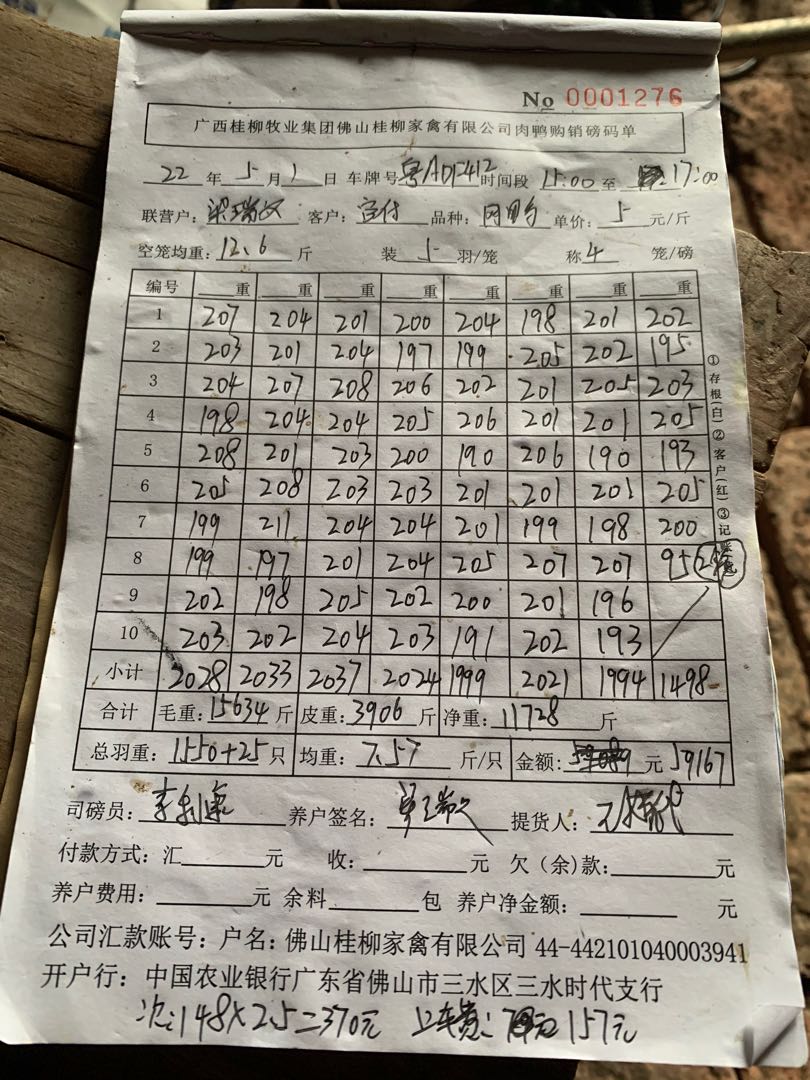 No 0001276
广西桂柳牧业集团佛山桂柳家禽有限公司肉鸭购销磅码单
22 年 5 月 1 日 车牌号 粤ADF412 时间段 15:00 至 17:00
联营户: 梁瑞文 客户: 品种: 单价: 5 元/斤
空笼均重: 12.6 斤 装 5 羽/笼 称 4 笼/磅
编号 重 重 重 重 重 重 重 重
1 207 204 201 200 204 198 201 202
2 203 201 204 197 199 205 202 195
3 204 207 208 206 202 201 205 203
4 198 204 204 205 206 201 201 205
5 208 201 203 200 190 206 190 193
6 205 208 203 203 201 201 201 205
7 199 211 204 204 201 199 198 200
8 199 197 201 204 205 207 207 95
9 202 198 205 202 200 201 196
10 203 202 204 203 191 202 193
小计 2028 2033 2037 2024 1999 2021 1994 1498
合计 毛重: 15634 斤 皮重: 3906 斤 净重: 11728 斤
总羽重: 1550+25 只 均重: 7.57 斤/只 金额: 元 59167
司磅员: 养户签名: 提货人:
付款方式: 汇 元 收: 元 欠(余)款: 元
养户费用: 元 余料 包 养户净金额: 元
公司汇款账号: 户名: 佛山桂柳家禽有限公司 44-442101040003941
开户行: 中国农业银行广东省佛山市三水区三水时代支行
148×2.5=370元 上车费: 157元
①存根(白)②客户(红)③记